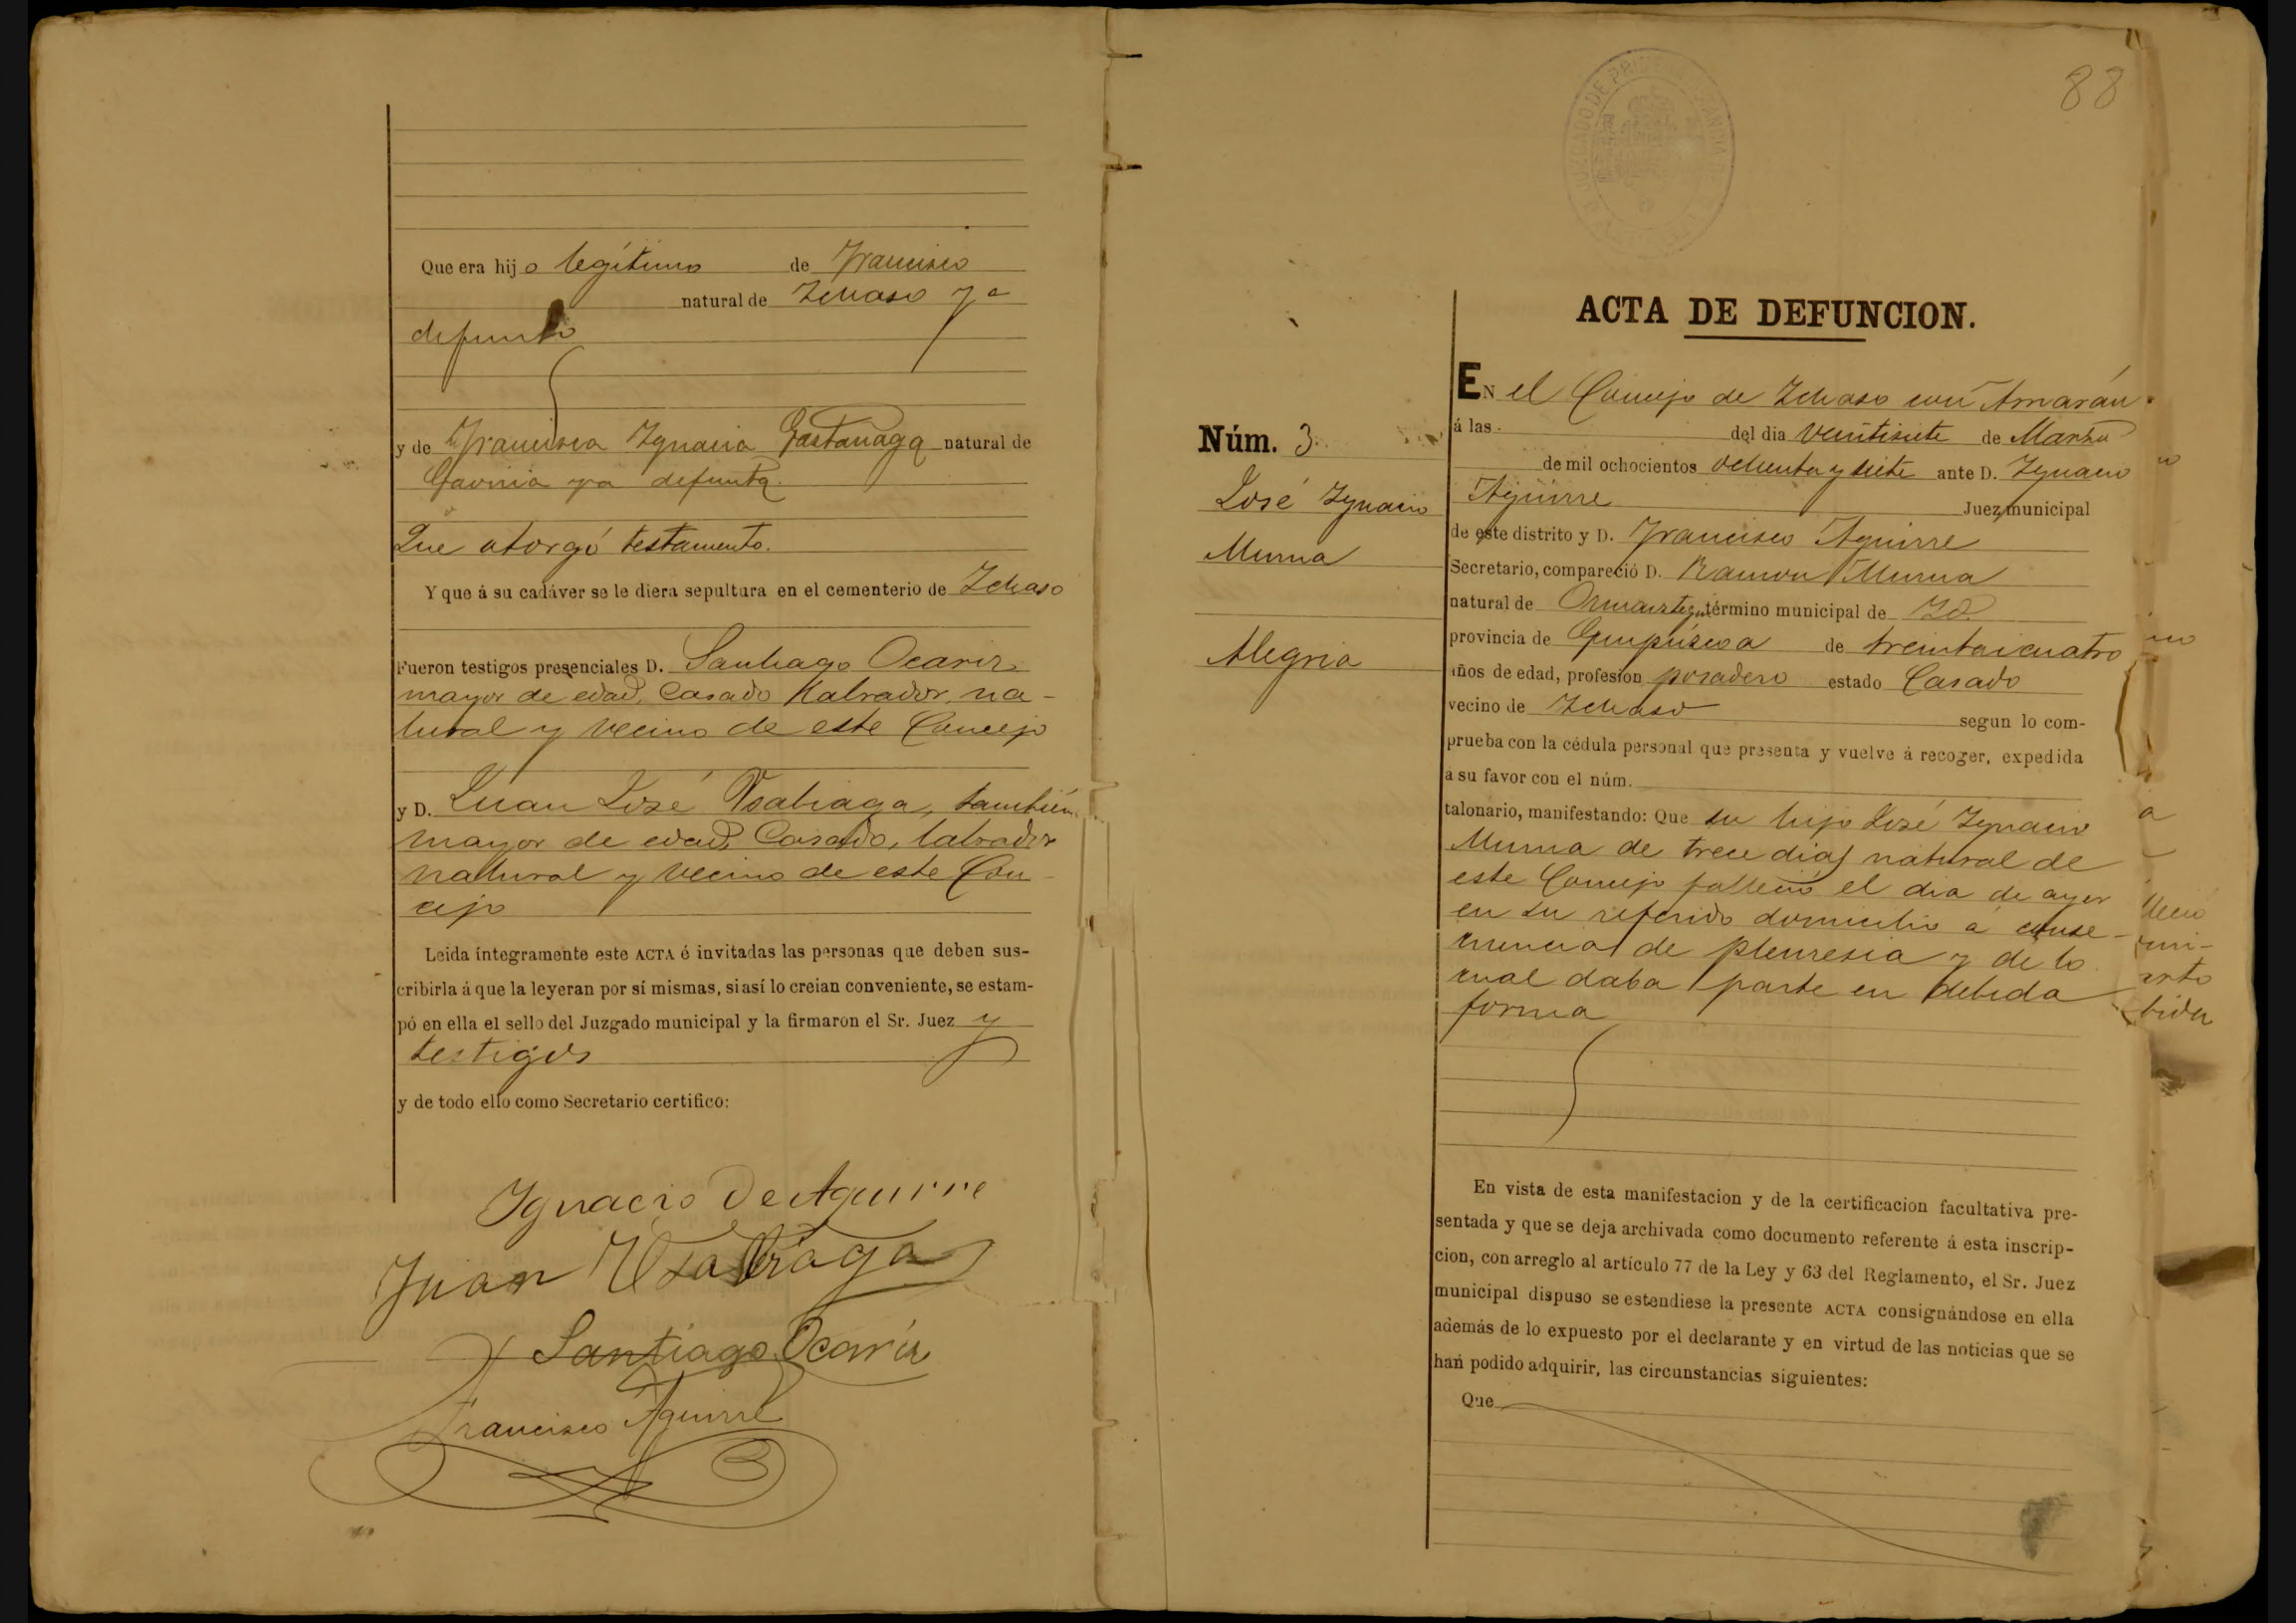 Que era hijo legítimo de Francisco
natural de Ichaso ya
defunto
y de Francisca Ygnacia Gastañaga natural de
Gaviria ya defunta.
Que otorgó testamento.
Y que á su cadáver se le diera sepultura en el cementerio de Ichaso
Fueron testigos presenciales D. Santiago Ocariz
mayor de edad, Casado Labrador, na-
tural y vecino de este Concejo
y D. Juan José Usabiaga, también
mayor de edad, Casado, labrador
natural y vecino de este Con-
cejo
Leida íntegramente este ACTA é invitadas las personas que deben sus-
cribirla á que la leyeran por sí mismas, si así lo creian conveniente, se estam-
pó en ella el sello del Juzgado municipal y la firmaron el Sr. Juez y
testigos
y de todo ello como Secretario certifico:
Ygnacio De Aguirre
Juan Usabiaga
Santiago Ocariz
Francisco Aguirre
88
ACTA DE DEFUNCION.
Núm. 3.
José Ygnacio
Murua
Alegria
EN el Concejo de Ichaso con Arrarán
á las del dia veintisiete de Marzo
de mil ochocientos ochenta y siete ante D. Ygnacio
Aguirre Juez municipal
de este distrito y D. Francisco Aguirre
Secretario, compareció D. Ramon Murua
natural de Ormaiztegui término municipal de Id.
provincia de Guipúzcoa de treintaicuatro
años de edad, profesion posadero estado Casado
vecino de Ichaso segun lo com-
prueba con la cédula personal que presenta y vuelve á recoger, expedida
á su favor con el núm.
talonario, manifestando: Que su hijo José Ygnacio
Murua de trece dias natural de
este Concejo falleció el dia de ayer
en su referido domicilio á conse-
cuencia de pleuresia y de lo
cual daba parte en debida
forma
En vista de esta manifestacion y de la certificacion facultativa pre-
sentada y que se deja archivada como documento referente á esta inscrip-
cion, con arreglo al artículo 77 de la Ley y 63 del Reglamento, el Sr. Juez
municipal dispuso se estendiese la presente ACTA consignándose en ella
además de lo expuesto por el declarante y en virtud de las noticias que se
han podido adquirir, las circunstancias siguientes:
Que